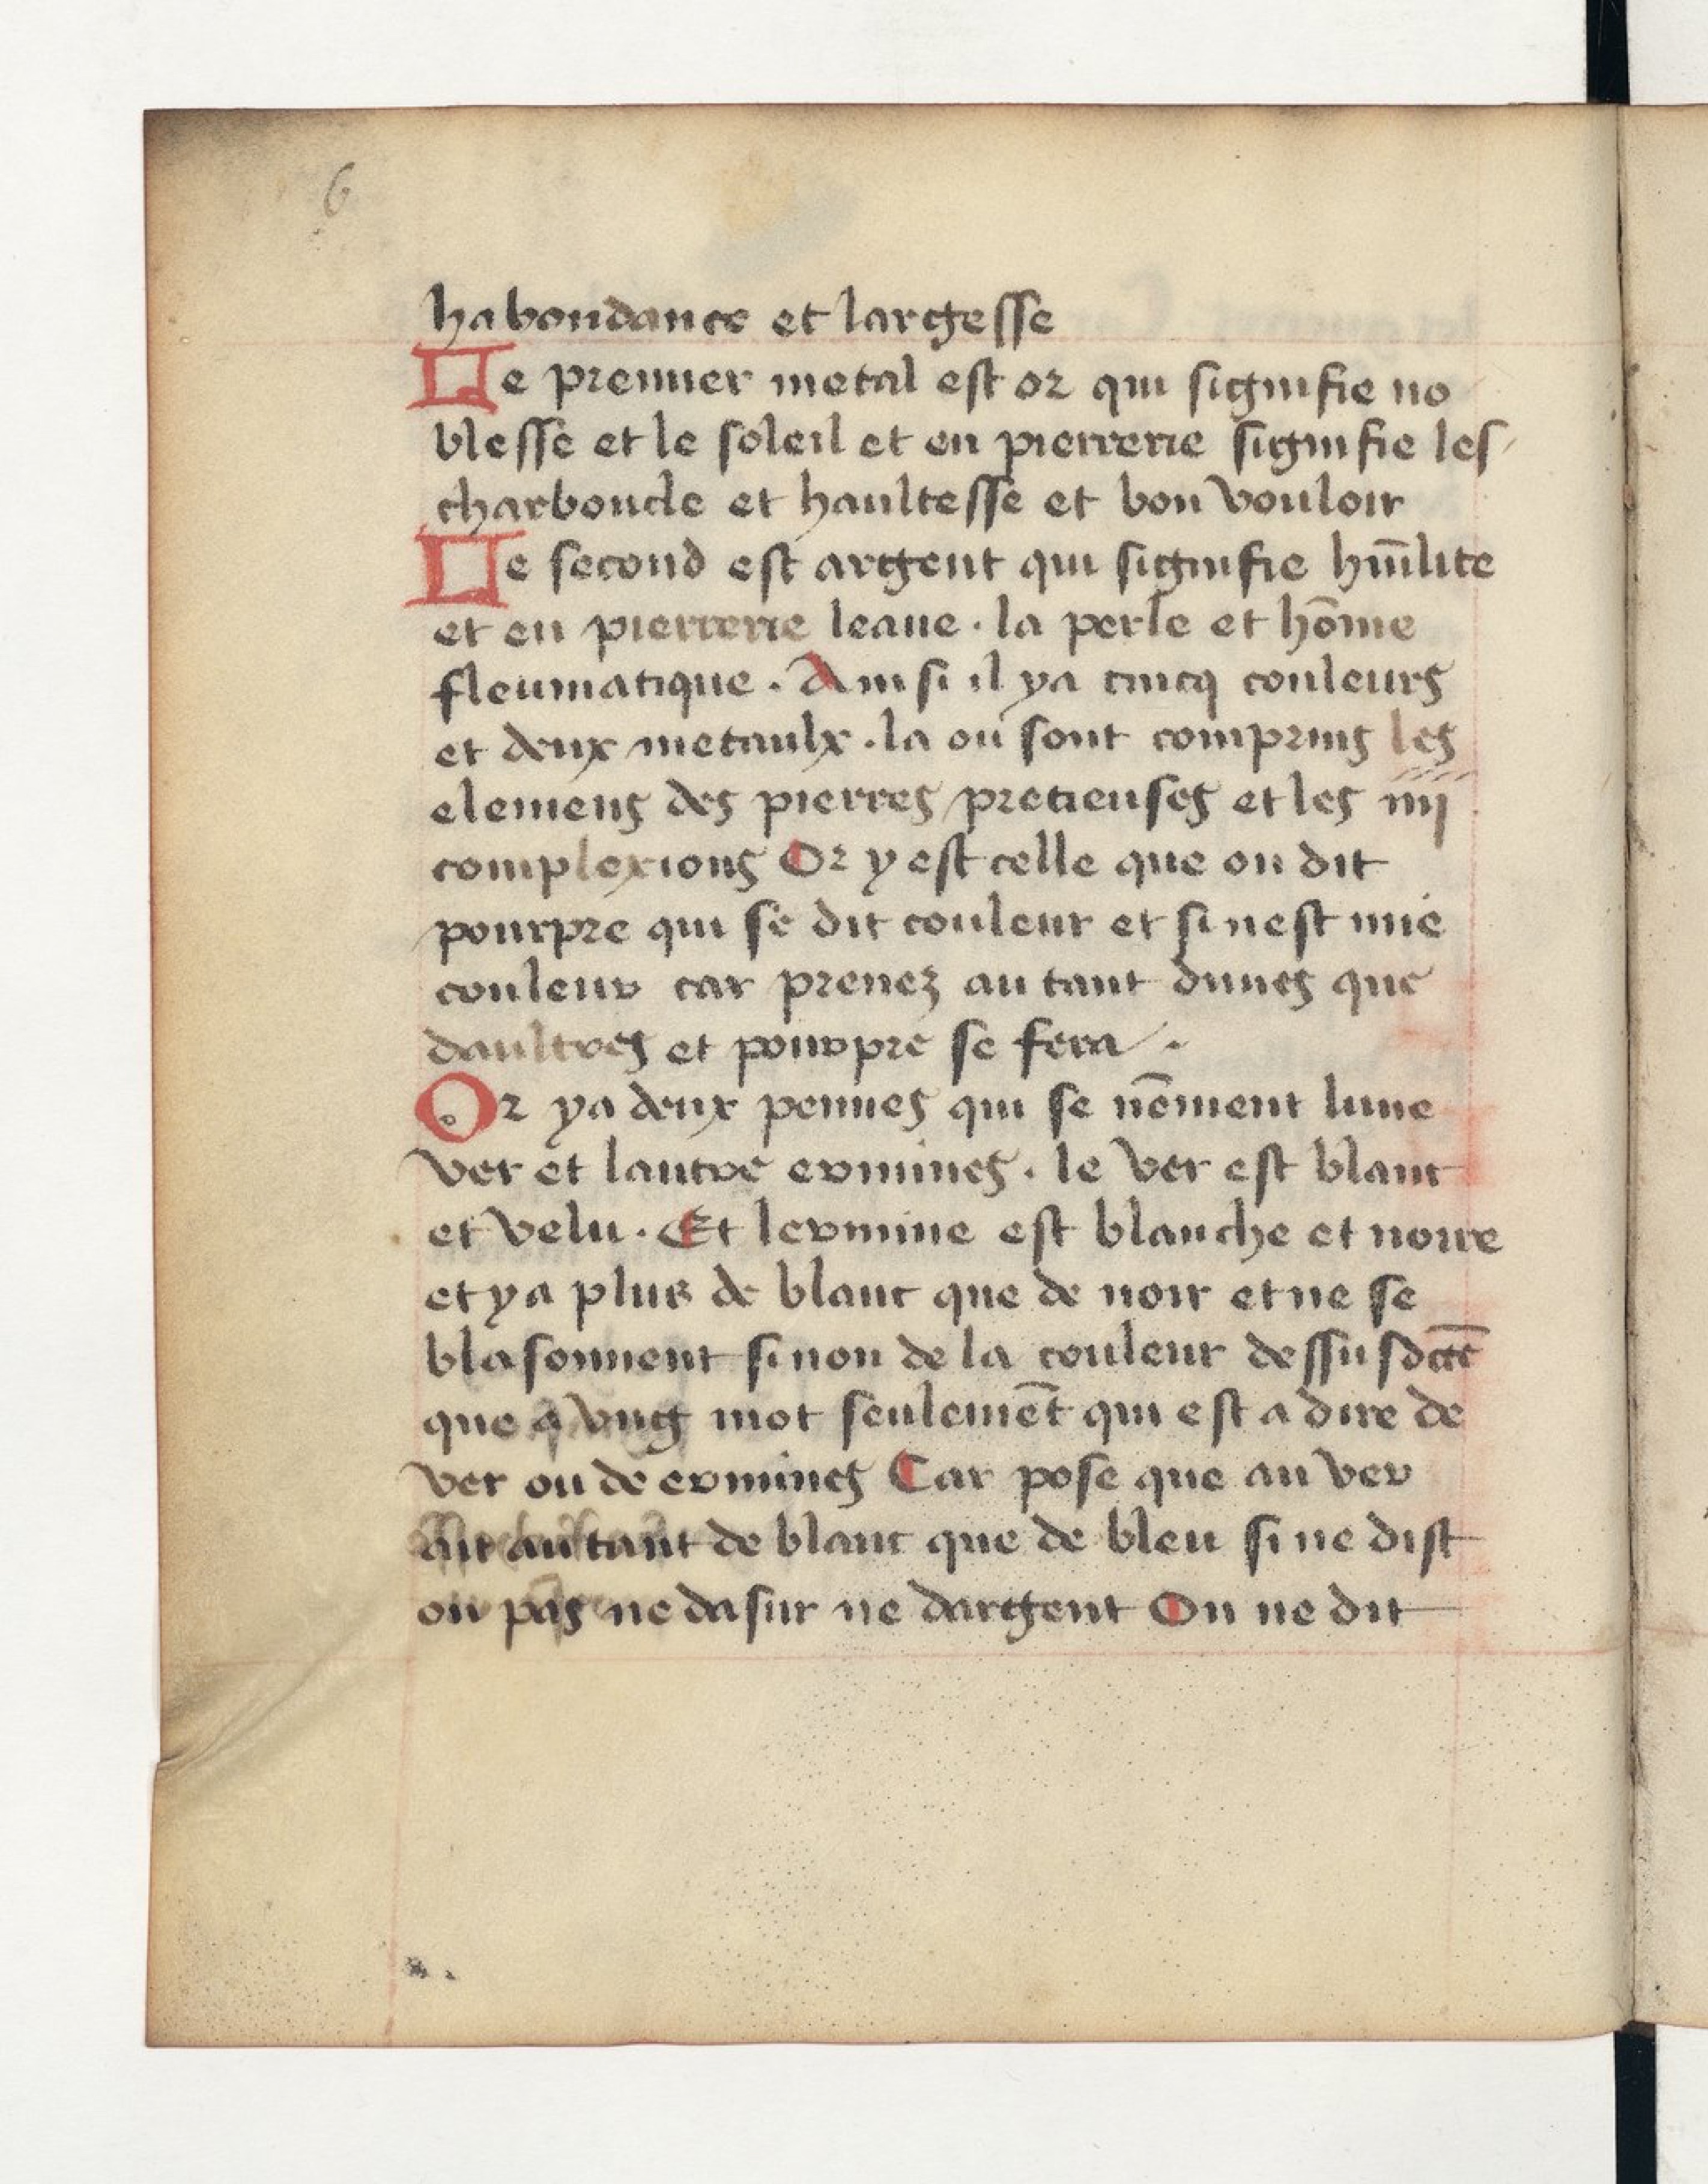 6
habondance et largesse
Le premier metal est or qui signifie no
blesse et le soleil et en pierrerie signifie les
charboucle et haultesse et bon vouloir
Le second est argent qui signifie hūīlite
et en pierrerie leaue · la perle et hōme
fleumatique · Ainsi il ya cincq couleurs
et deux metaulx · la ou sont comprins les
elemens des pierres pretieuses et les iiij
complexions Or y est celle que on dit
pourpre qui se dit couleur et si nest mie
couleur car prenez au tant dunes que
daultres et pourpre se fera / ·
Or ya deux pennes qui se nōment lune
ver et lautre ermines · le ver est blanc
et velu · Et lermine est blanche et noire
et ya plus de blanc que de noir et ne se
blasonnent si non de la couleur dessusdcte
que a vng mot seulemēt qui est a dire de
ver ou de ermines Car pose que au ver
ait autant de blanc que de bleu si ne dist
on pas ne dasur ne dargent On ne dit